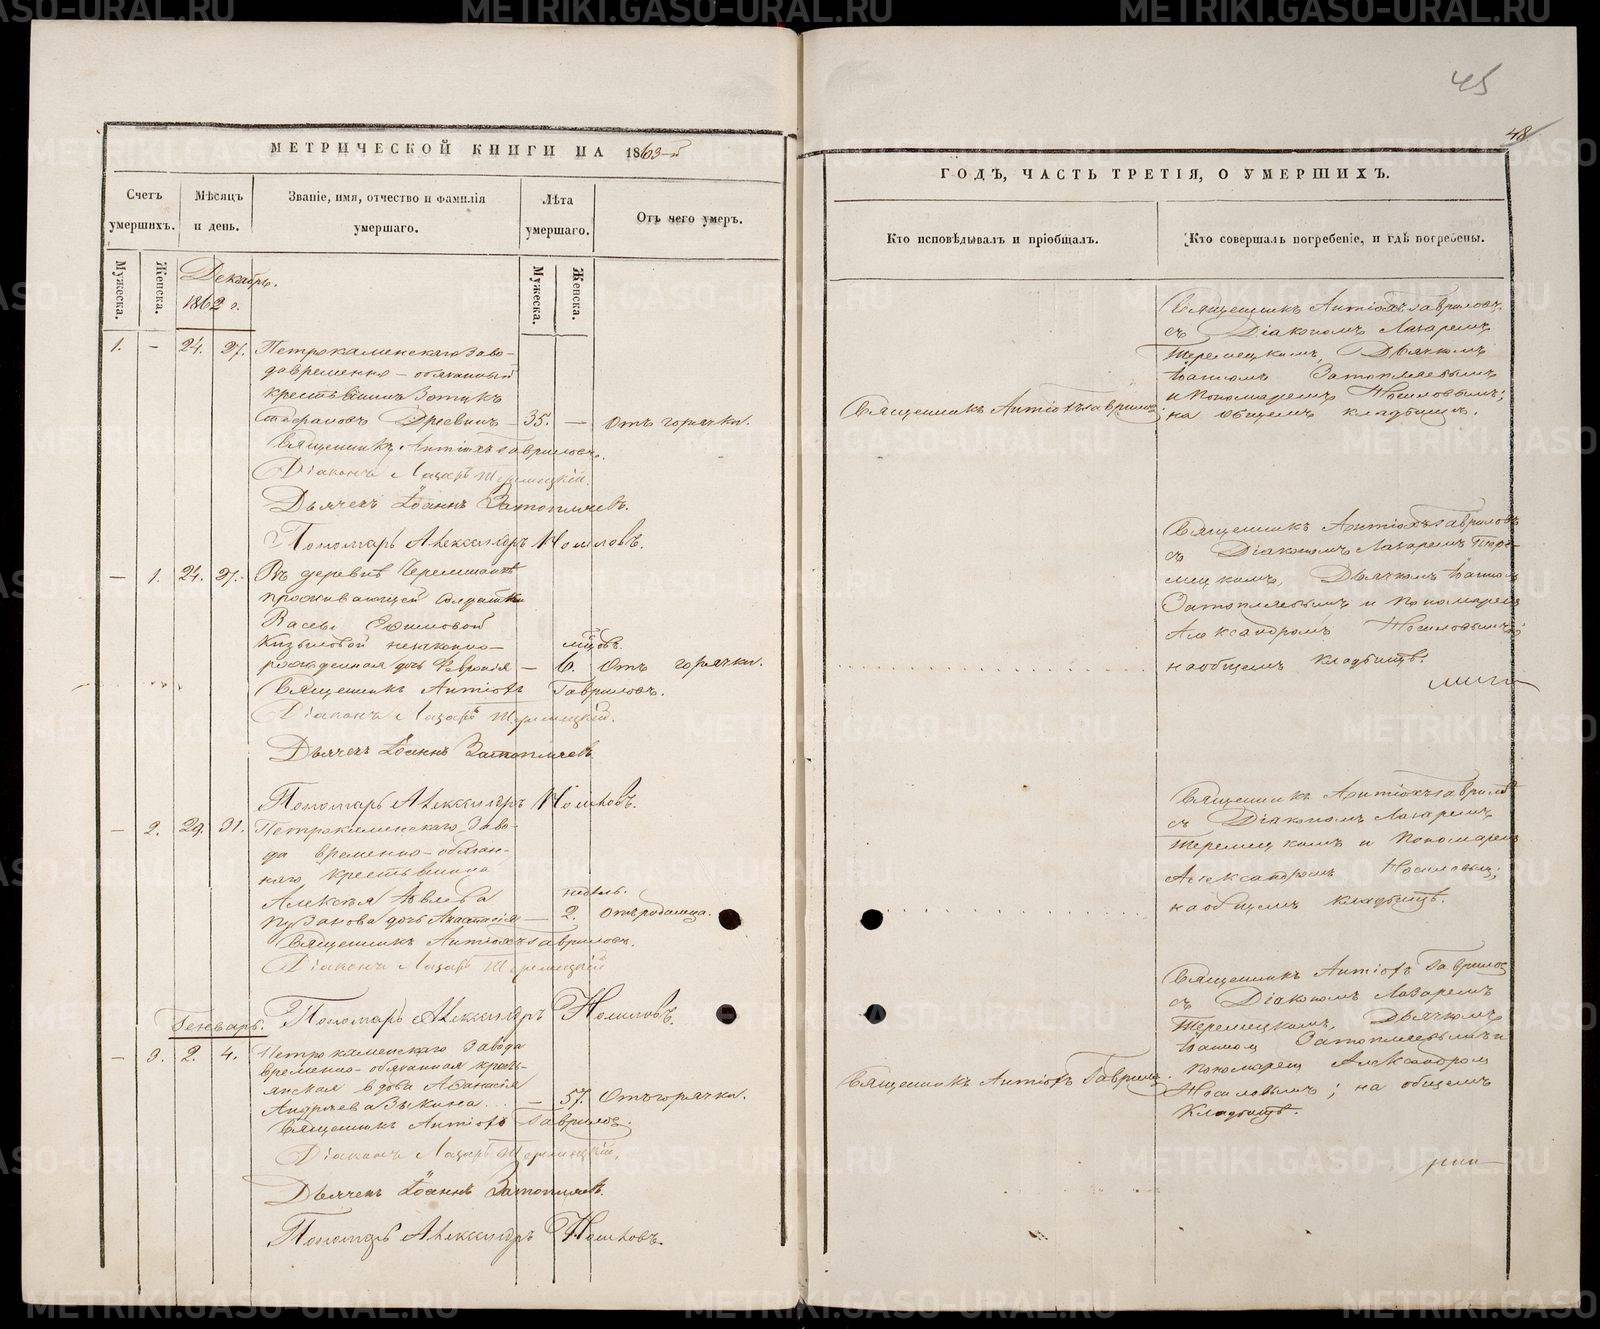 45
48
МЕТРИЧЕСКОЙ КНИГИ НА 1863-й
Счетъ умершихъ.
Мѣсяцъ и день.
Званіе, имя, отчество и фамилія умершаго.
Лѣта умершаго.
Отъ чего умеръ.
Мужеска.
Женска.
Мужеска.
Женска.
Декабрь.
1862 г.
1. — 24. 27. Петрокаменскаго Заво-
да временно-обязанный
крестьянинъ Зотикъ
Стефановъ Древинъ — 35. — Отъ горячки.
Священникъ Антіохъ Гавриловъ.
Діаконъ Лазарь
Дьячекъ Іоаннъ Затопляевъ.
Пономарь Александръ Носиловъ.
— 1. 24. 27. Въ деревнѣ
проживающей солдатки
Вассы Ефимовой
незаконно- мѣсцовъ.
рожденная дочь Февронія — 6. Отъ горячки.
Священникъ Антіохъ Гавриловъ.
Діаконъ Лазарь
Дьячекъ Іоаннъ Затопляевъ
Пономарь Александръ Носиловъ.
— 2. 29. 31. Петрокаменскаго Заво-
да временно-обязан-
наго крестьянина
Алексѣя недѣль.
Пузанова дочь Анастасія — 2. Отъ родимца.
Священникъ Антіохъ Гавриловъ.
Діаконъ Лазарь
Пономарь Александръ Носиловъ.
Генварь.
— 3. 2. 4. Петрокаменскаго Завода
временно-обязанная кресть-
янская вдова Афанасія
Андреева Зыкина — 57. Отъ горячки.
Священникъ Антіохъ Гавриловъ.
Діаконъ Лазарь
Дьячекъ Іоаннъ Затопляевъ.
Пономарь Александръ Носиловъ.
ГОДЪ, ЧАСТЬ ТРЕТІЯ, О УМЕРШИХЪ.
Кто исповѣдывалъ и пріобщалъ.
Кто совершалъ погребеніе, и гдѣ погребены.
Священникъ Антіохъ Гавриловъ
съ Діакономъ Лазаремъ
Теремецкимъ, Дьячкомъ
Іоанномъ Затопляевымъ
и Пономаремъ Носиловымъ;
на общемъ кладбищѣ.
Священникъ Антіохъ Гавриловъ
Священникъ Антіохъ Гавриловъ
съ Діакономъ Лазаремъ Тере-
мецкимъ, Дьячкомъ Іоанномъ
Затопляевымъ и Пономаремъ
Александромъ Носиловымъ;
на общемъ кладбищѣ.
Священникъ Антіохъ Гавриловъ
съ Діакономъ Лазаремъ
Теремецкимъ и Пономаремъ
Александромъ Носиловымъ;
на общемъ кладбищѣ.
Священникъ Антіохъ Гавриловъ
съ Діакономъ Лазаремъ
Теремецкимъ, Дьячкомъ
Іоанном Затопляевымъ и
Пономарем Александром
Носиловымъ; на общемъ
кладбищѣ.
Священникъ Антіохъ Гавриловъ.
METRIKI.GASO-URAL.RU